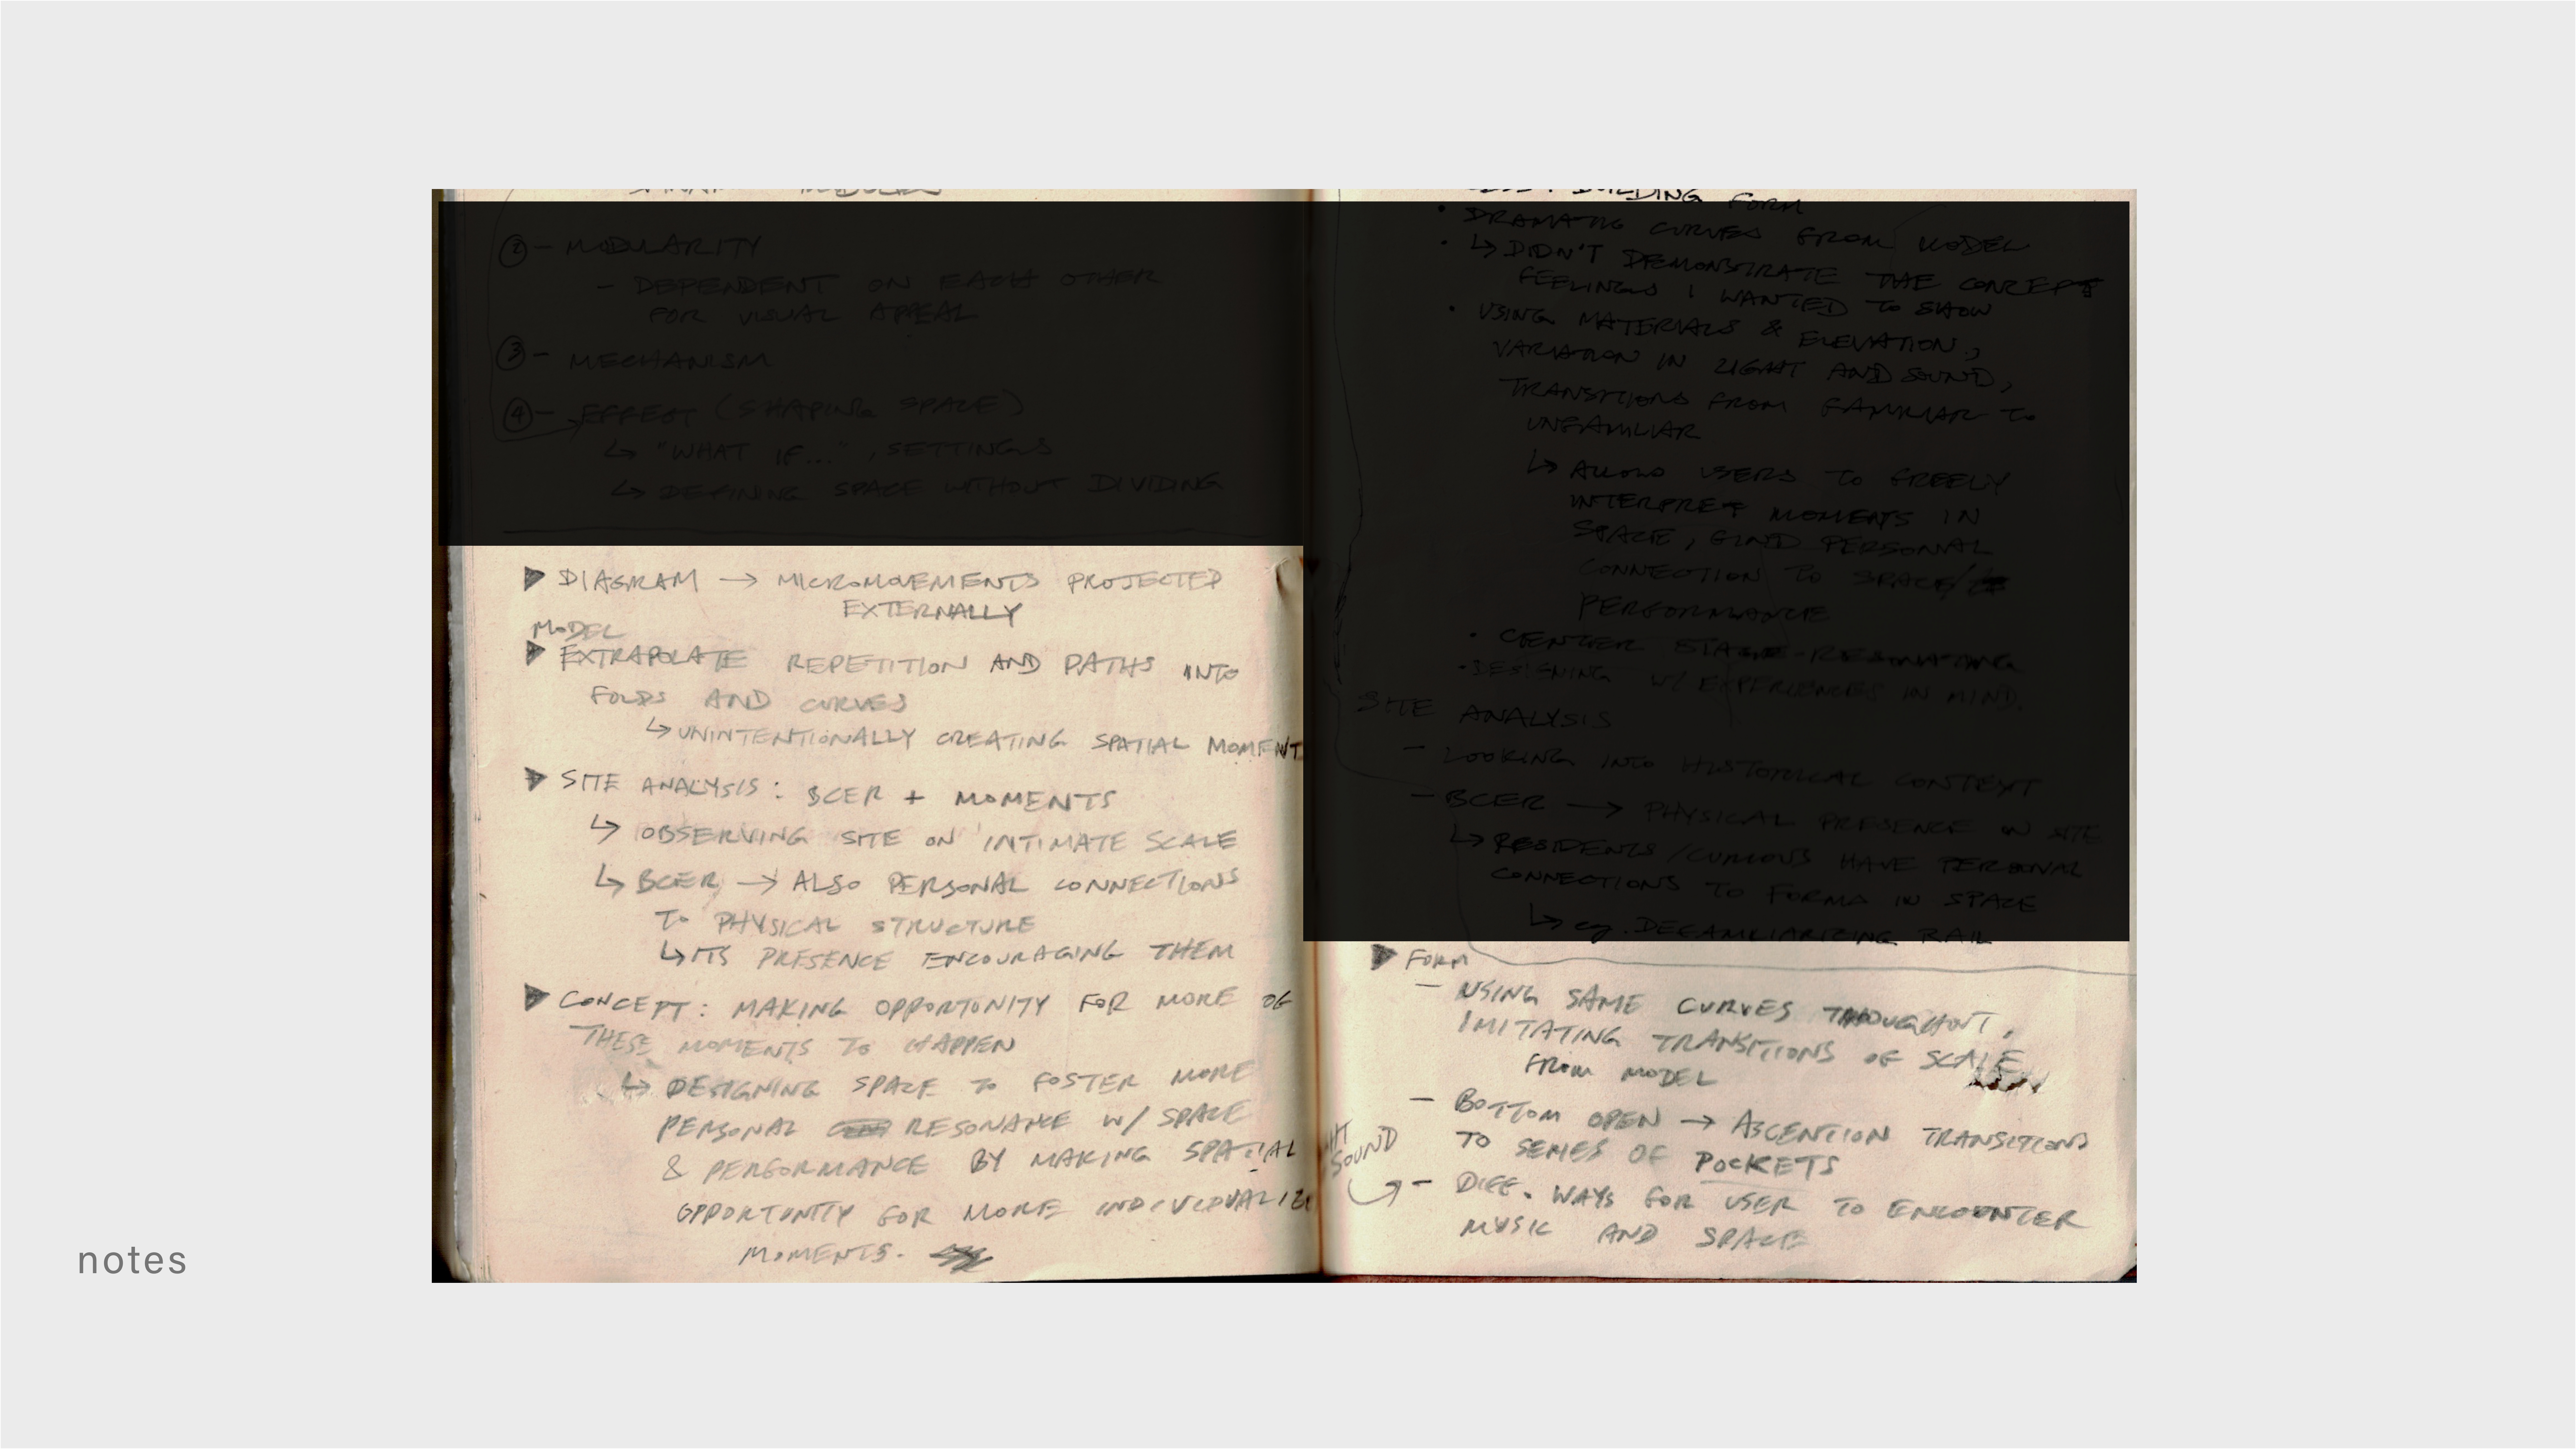 ② - MODULARITY
- DEPENDENT ON EACH OTHER
FOR VISUAL APPEAL
③ - MECHANISM
④ - EFFECT (SHAPING SPACE)
↳ "WHAT IF...", SETTINGS
↳ DEFINING SPACE WITHOUT DIVIDING
▶ DIAGRAM → MICROMOVEMENTS PROJECTED
EXTERNALLY
MODEL
▶ EXTRAPOLATE REPETITION AND PATHS INTO
FOLDS AND CURVES
↳ UNINTENTIONALLY CREATING SPATIAL MOMENT
▶ SITE ANALYSIS: BCER + MOMENTS
↳ OBSERVING SITE ON INTIMATE SCALE
↳ BCER → ALSO PERSONAL CONNECTIONS
TO PHYSICAL STRUCTURE
↳ ITS PRESENCE ENCOURAGING THEM
▶ CONCEPT: MAKING OPPORTUNITY FOR MORE OF
THESE MOMENTS TO HAPPEN
↳ DESIGNING SPACE TO FOSTER MORE
PERSONAL RESONANCE W/ SPACE
& PERFORMANCE BY MAKING SPATIAL
OPPORTUNITY FOR MORE
MOMENTS.
BUILDING FORM
• DRAMATIC CURVES FROM MODEL
• ↳ DIDN'T DEMONSTRATE THE CONCEPT
FEELINGS I WANTED TO SHOW
• USING MATERIALS & ELEVATION,
VARIATION IN LIGHT AND SOUND,
TRANSITIONS FROM FAMILIAR TO
UNFAMILIAR
↳ ALLOWS USERS TO FREELY
INTERPRET MOMENTS IN
SPACE, FIND PERSONAL
CONNECTION TO SPACE/
PERFORMANCE
• CENTER STAGE - RESONATING
• DESIGNING W/ EXPERIENCES IN MIND.
SITE ANALYSIS
- LOOKING INTO HISTORICAL CONTEXT
- BCER → PHYSICAL PRESENCE ON SITE
↳ RESIDENTS/CURIOUS HAVE PERSONAL
CONNECTIONS TO FORMS IN SPACE
↳ eg. DEFAMILIARIZING RAIL
▶ FORM
- USING SAME CURVES THOUGHOUT,
IMITATING TRANSITIONS OF SCALE
FROM MODEL
- BOTTOM OPEN → ASCENTION TRANSITIONS
TO SERIES OF POCKETS
SOUND
- DIFF. WAYS FOR USER TO ENCOUNTER
MUSIC AND SPACE
notes